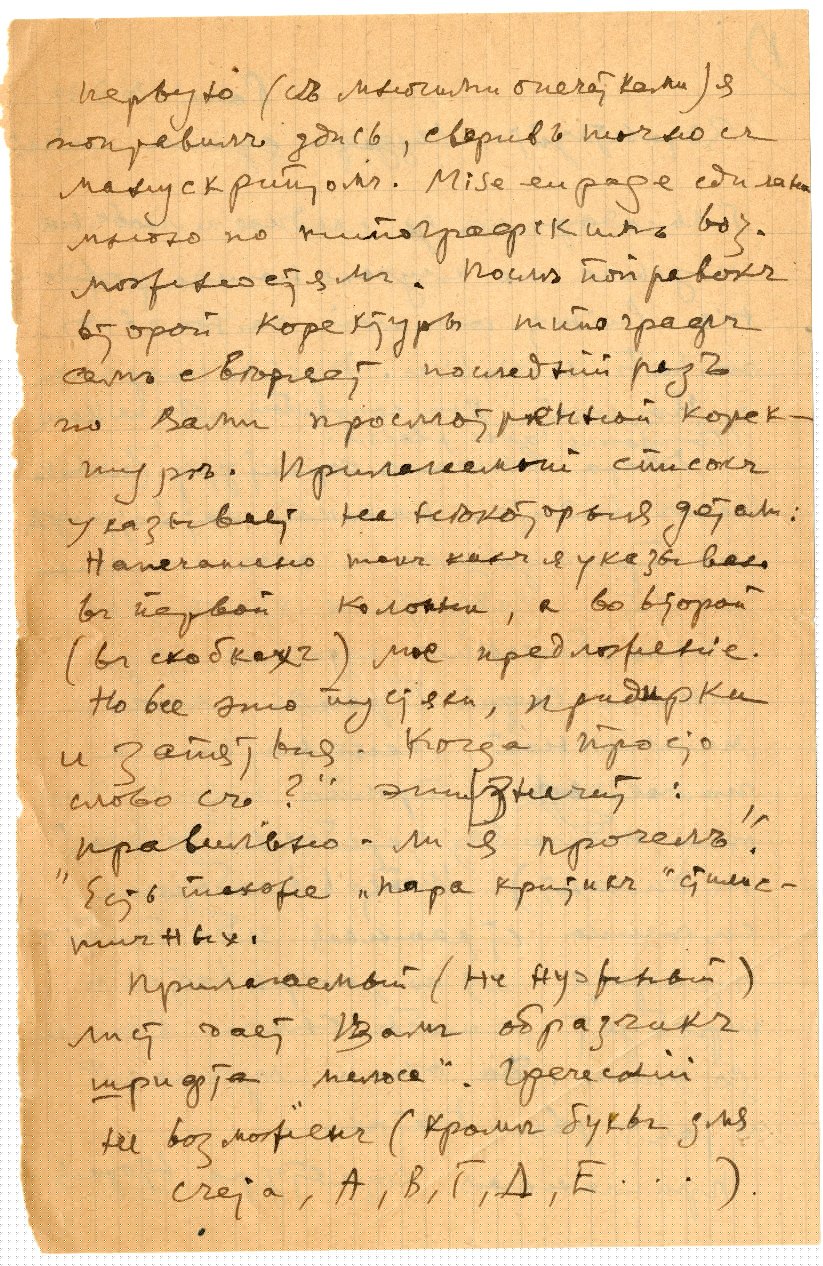 первую (съ многими опечатками) я
поправилъ здѣсь, свѣривъ точно съ
манускриптомъ. Mise en page сдѣлана
много по типографскимъ воз-
можностямъ. Послѣ поправокъ
второй коректуры типографъ
самъ свѣряетъ последній разъ
по Вами просмотрѣнной корек-
турѣ. Прилагаемый списокъ
указываетъ на нѣкоторыя детали:
Напечатано такъ какъ я указываю
въ первой колонни, а во второй
(въ скобкахъ) мое предложеніе.
Но все это пустяки, придирки
и запятыя. Когда просто
слово съ "?" это значит:
"правильно-ли я прочелъ?"
Есть также "пара критикъ" стилис-
тичных.
Прилагаемый (не нужный)
лист дает Вамъ образчикъ
шрифта "мелюса". Греческій
не возможенъ (кромѣ буквъ для
счета, А, В, Г, Д, Е . . . .).